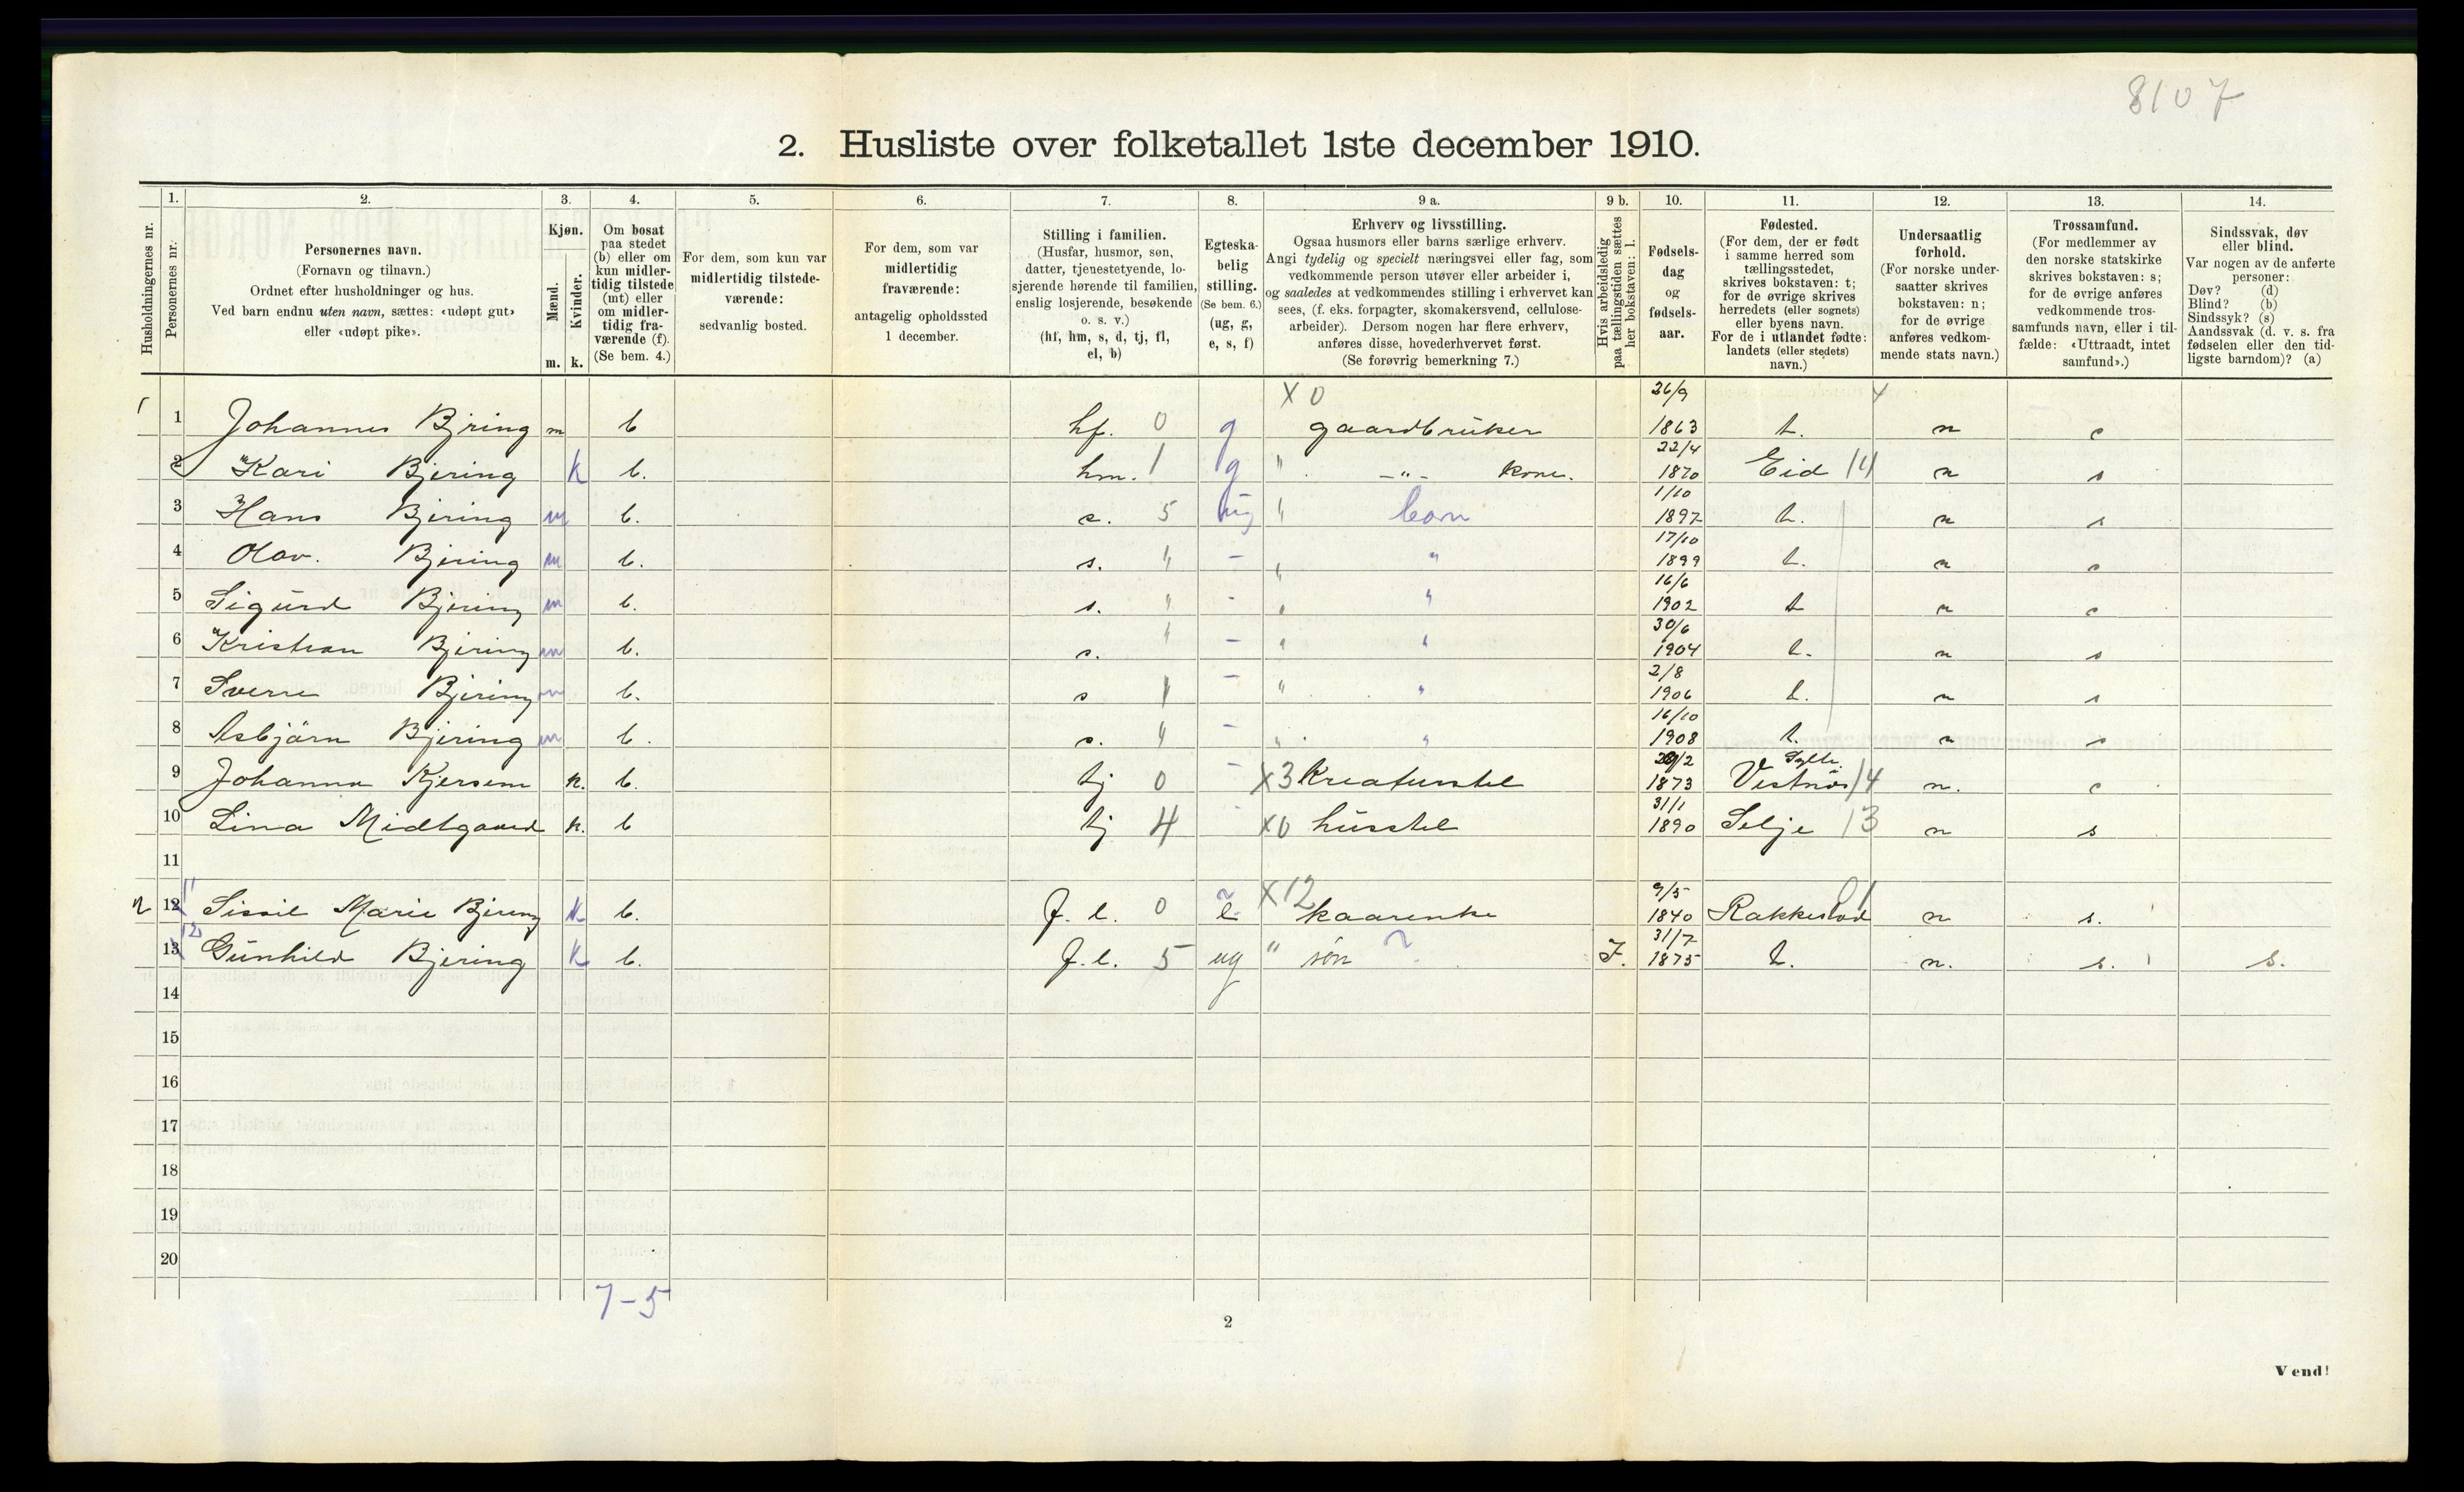 8107
2. Husliste over folketallet 1ste december 1910.
Husholdningernes nr.
1. Personernes nr.
2. Personernes navn. (Fornavn og tilnavn.) Ordnet efter husholdninger og hus. Ved barn endnu uten navn, sættes: «udøpt gut» eller «udøpt pike».
3. Kjøn. Mænd. m. Kvinder. k.
4. Om bosat paa stedet (b) eller om kun midlertidig tilstede (mt) eller om midlertidig fraværende (f). (Se bem. 4.)
5. For dem, som kun var midlertidig tilstedeværende: sedvanlig bosted.
6. For dem, som var midlertidig fraværende: antagelig opholdssted 1 december.
7. Stilling i familien. (Husfar, husmor, søn, datter, tjenestetyende, losjerende hørende til familien, enslig losjerende, besøkende o. s. v.) (hf, hm, s, d, tj, fl, el, b)
8. Egteskabelig stilling. (Se bem. 6.) (ug, g, e, s, f)
9 a. Erhverv og livsstilling. Ogsaa husmors eller barns særlige erhverv. Angi tydelig og specielt næringsvei eller fag, som vedkommende person utøver eller arbeider i, og saaledes at vedkommendes stilling i erhvervet kan sees, (f. eks. forpagter, skomakersvend, cellulosearbeider). Dersom nogen har flere erhverv, anføres disse, hovederhvervet først. (Se forøvrig bemerkning 7.)
9 b. Hvis arbeidsledig paa tællingstiden sættes her bokstaven: l.
10. Fødselsdag og fødselsaar.
11. Fødested. (For dem, der er født i samme herred som tællingsstedet, skrives bokstaven: t; for de øvrige skrives herredets (eller sognets) eller byens navn. For de i utlandet fødte: landets (eller stedets) navn.)
12. Undersaatlig forhold. (For norske undersaatter skrives bokstaven: n; for de øvrige anføres vedkommende stats navn.)
13. Trossamfund. (For medlemmer av den norske statskirke skrives bokstaven: s; for de øvrige anføres vedkommende trossamfunds navn, eller i tilfælde: «Uttraadt, intet samfund».)
14. Sindssvak, døv eller blind. Var nogen av de anførte personer: Døv? (d) Blind? (b) Sindssyk? (s) Aandssvak (d. v. s. fra fødselen eller den tidligste barndom)? (a)
1 1 Johannes Bjring m b hf. 0 g X 0 gaardbruker 26/9 1863 t. n s
2 Kari Bjering k b. hm. 1 g " -"- kone. 22/4 1870 Eid 14 n s
3 Hans Bjering m b. s. 5 ug " barn 1/10 1897 t. n s
4 Olav. Bjering m b. s. " - " " 17/10 1899 t. n s
5 Sigurd Bjering m b. s. " - " " 16/6 1902 t n s
6 Kristian Bjering m b. s. " - " " 30/6 1904 t. n s
7 Sverre Bjering m b. s " - " " 2/8 1906 t. n s
8 Asbjörn Bjering m b. s. " - " " 16/10 1908 t. n s
9 Johanna Kjersem k. b. tj 0 - X3 Kreaturstel /2 1873 Vestnös 14 n. s
10 Lina Midtgaard k. b tj 4 - X0 husstel 31/1 1890 Selje 13 n s
11
2 12 11 Sissil Marie Bjering k b. f. l. 0 e X12 kaarenke 9/5 1840 Rakkestad 01 n s.
13 12 Gunhild Bjering k b. f. l. 5 ug " sön 31/7 1875 t. n. s. s.
14
15
16
17
18
19
20
7-5
2
Vend!